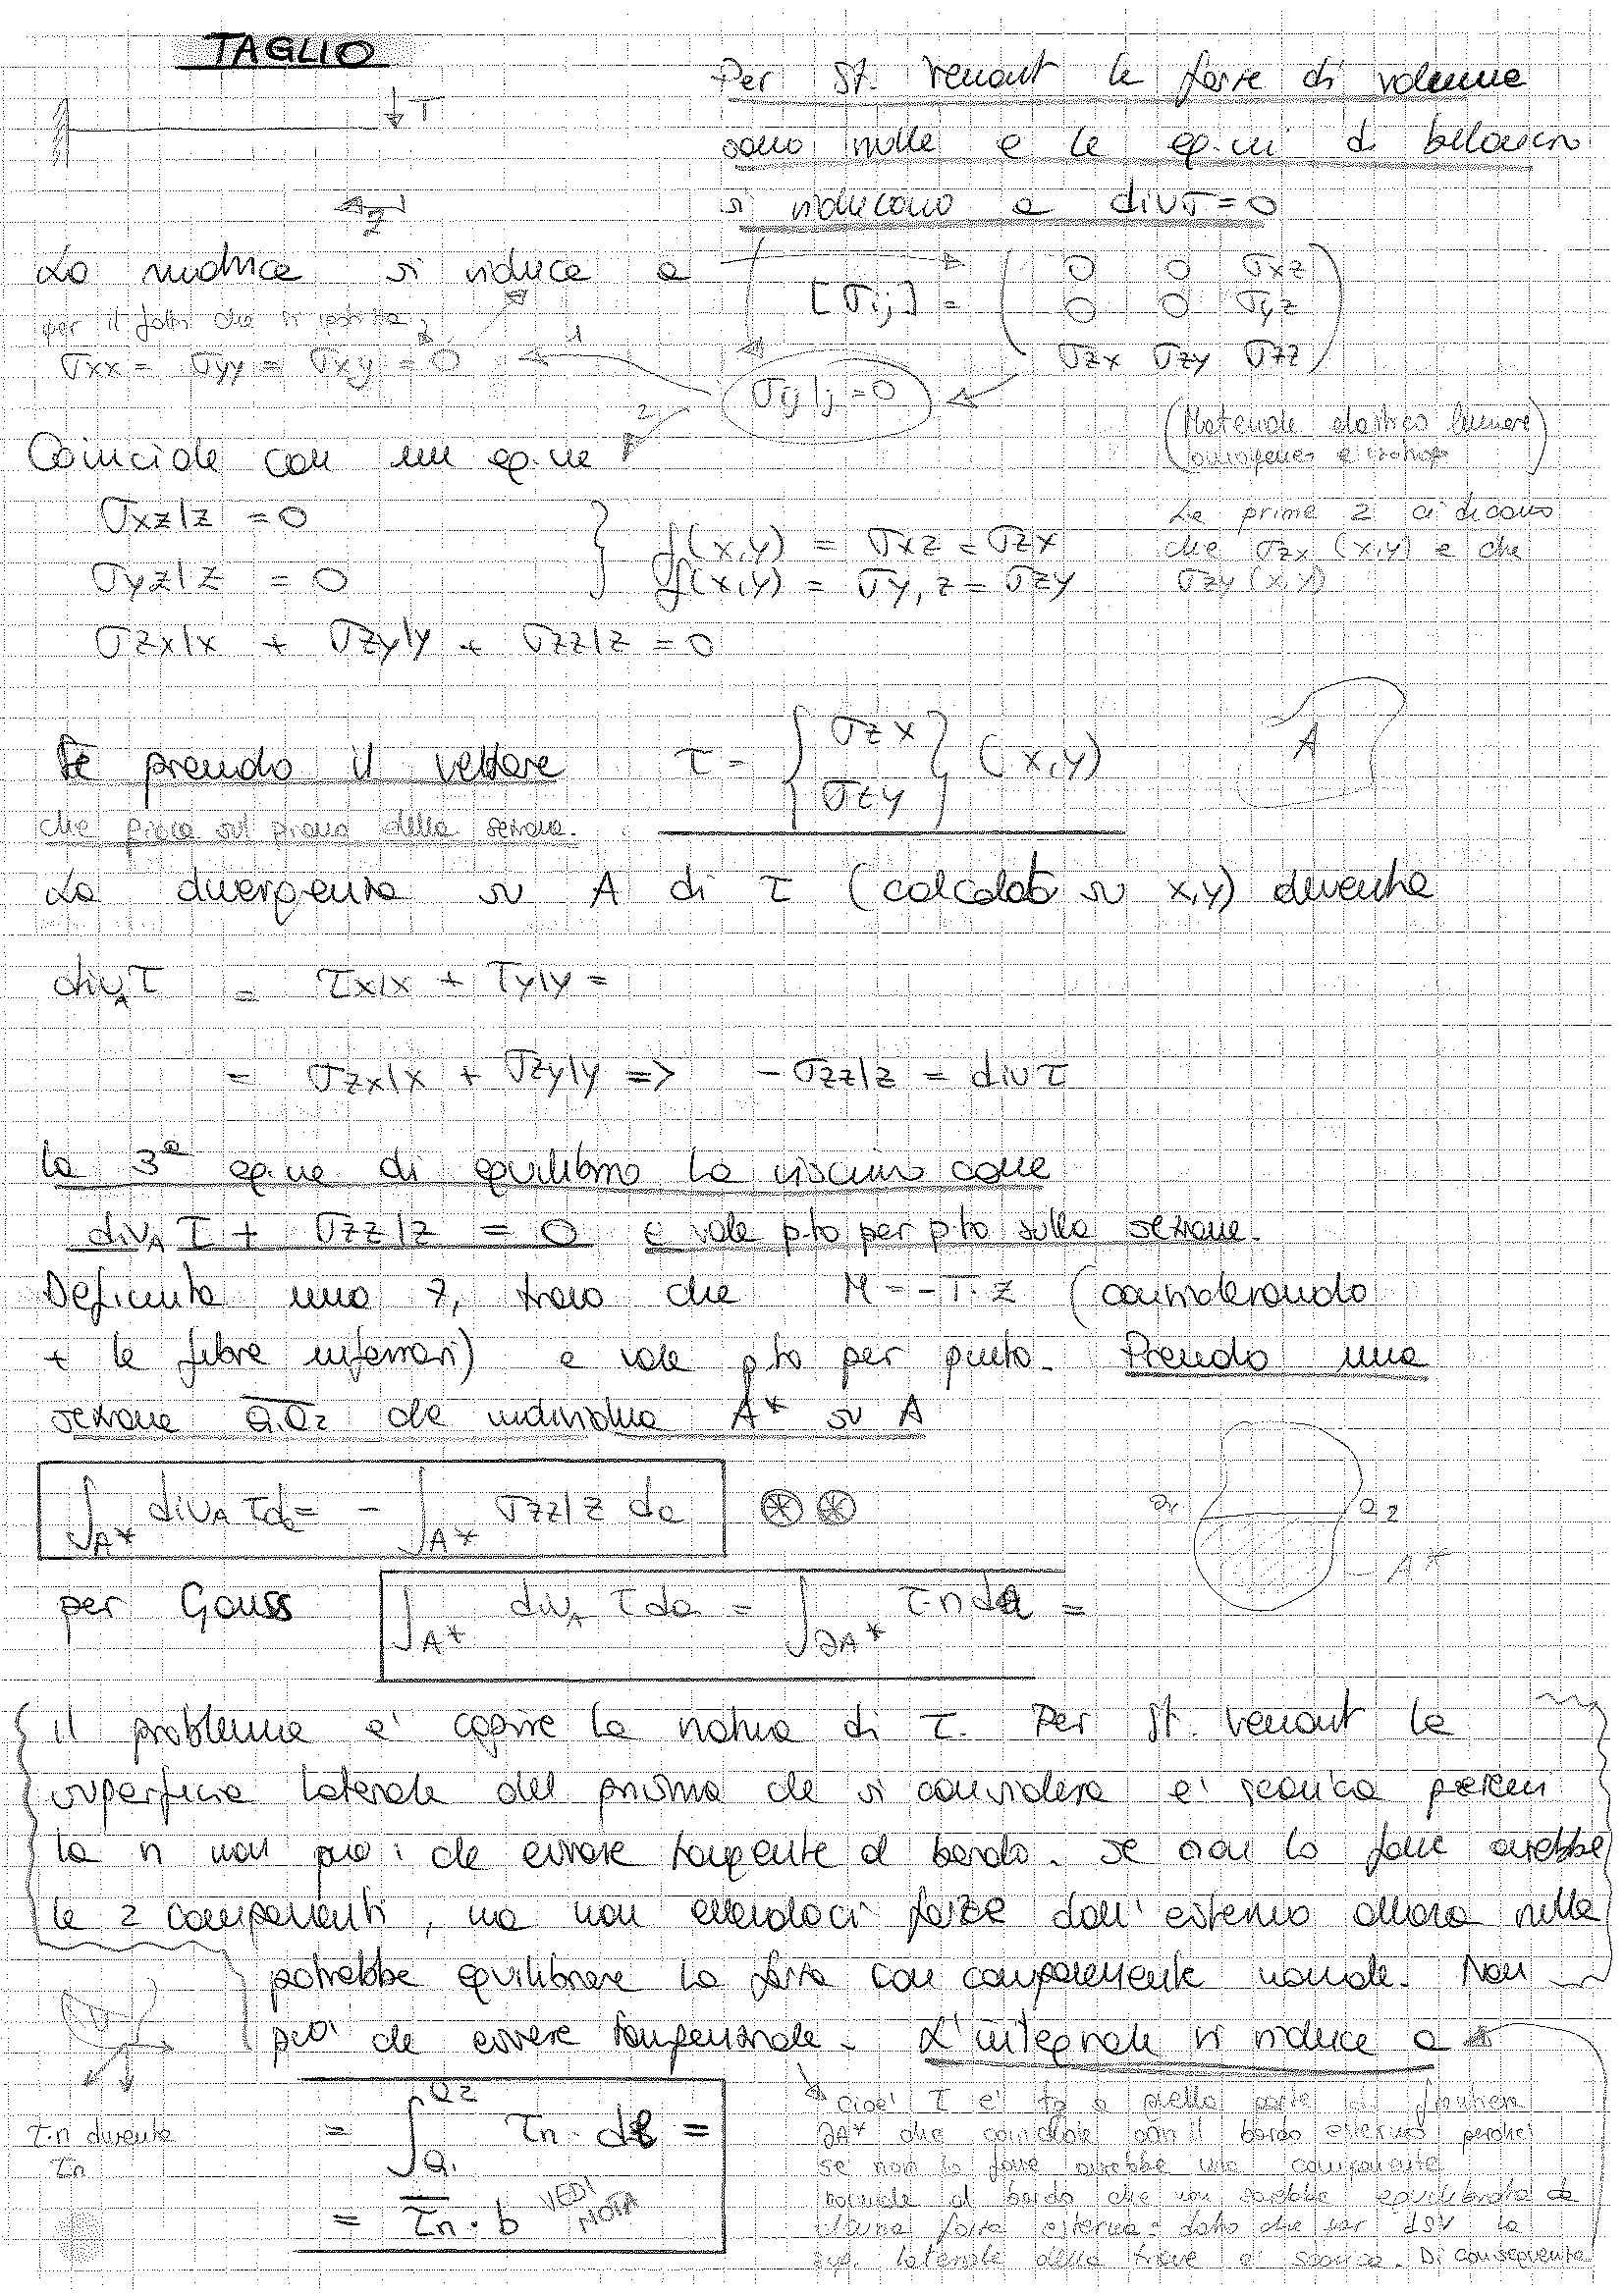 TAGLIO
T
z
Per St. Venant le forze di volume
sono nulle e le eq.ni di bilancio
si riducono a divσ=0
La matrice si riduce a
[σij] = ( 0 0 σxz
0 0 σyz
σzx σzy σzz )
per il fatto che si ipotizza
σxx = σyy = σxy = 0
1
σij|j = 0
2
(Materiale elastico lineare
omogeneo e isotropo)
Coincide con un eq.ne
σxz|z = 0
σyz|z = 0
σzx|x + σzy|y + σzz|z = 0
} f(x,y) = σxz = σzx
f(x,y) = σy,z = σzy
Le prime 2 ci dicono
che σzx (x,y) e che
σzy (x,y)
Se prendo il vettore τ = { σzx σzy } (x,y)
che giace sul piano della sezione.
A
La divergenza su A di τ (calcolata su x,y) diventa
div_A τ = τx|x + τy|y =
= σzx|x + σzy|y => - σzz|z = divτ
la 3ª eq.ne di equilibrio la riscrivo come
div_A τ + σzz|z = 0 e vale p.to per p.to sulla sezione.
Definita una z, trovo che M = - T·z (considerando
+ le fibre inferiori) e vale p.to per punto. Prendo una
sezione Q1Q2 che individua A* su A
∫A* div_A τ da = - ∫A* σzz|z da ⊛⊛
Q1 Q2
A*
per Gauss ∫A* div_A τ da = ∫∂A* τ·n da =
il problema e' capire la natura di τ. Per St. Venant la
superficie laterale del prisma che si considera e' scarica perciò
la n non può che essere tangente al bordo. Se non lo fosse avrebbe
le 2 componenti, ma non essendoci forze dall'esterno allora nulla
potrebbe equilibrare la forza con componente normale. Non
può che essere tangenziale. L'integrale si riduce a
= ∫Q1 Q2 τn · dl =
= τn · b VEDI NOTA
τ·n diventa
τn
cioe' τ e' tg a quella parte di frontiera
∂A* che coincide con il bordo esterno perche'
se non lo fosse avrebbe una componente
normale al bordo che non sarebbe equilibrata da
alcuna forza esterna dato che per DSV la
sup. laterale della trave e' scarica. Di conseguenza